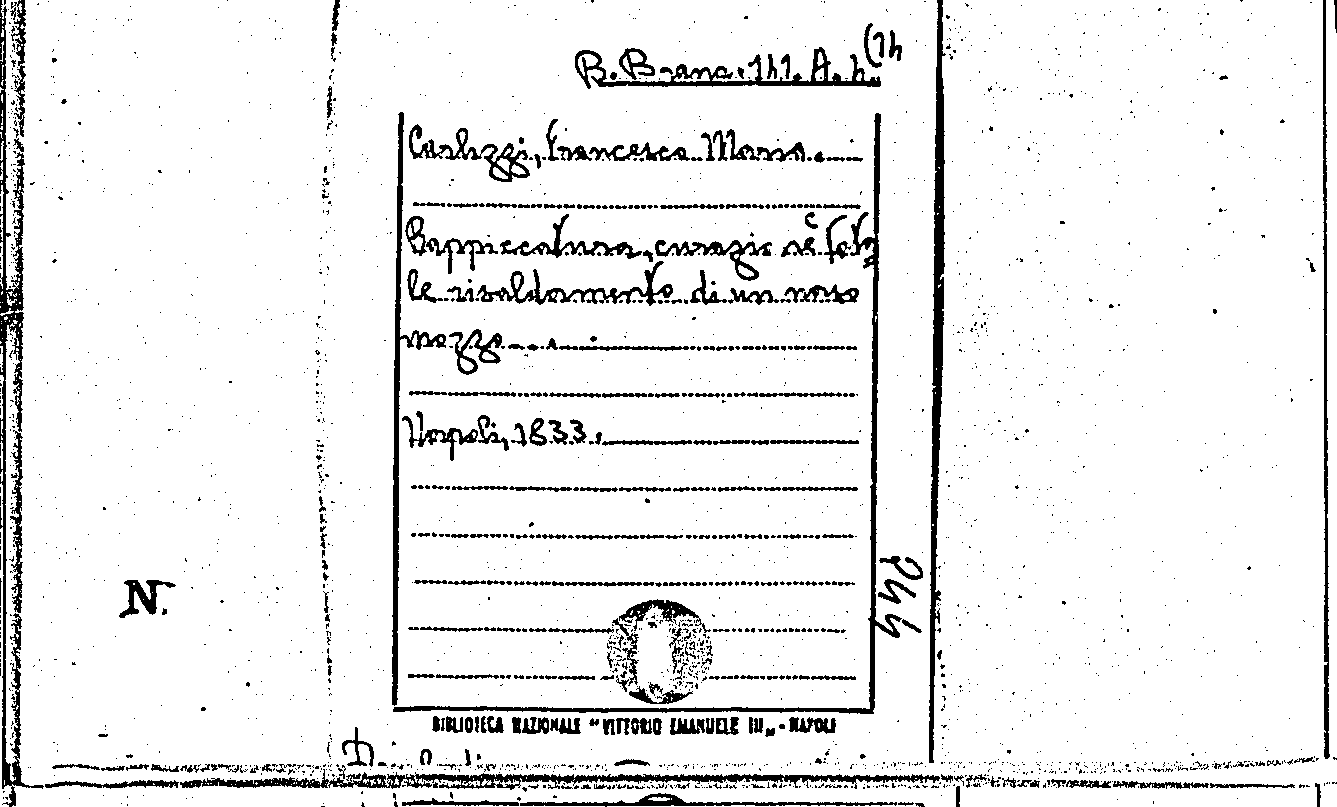 B. Branc. 141. A. 4. (14
Carlizzi, Francesco Maria.
Lappiccatura, tota=
le risaldamento di un naso
mozzo...
Napoli, 1833.
944
N.
BIBLIOTECA NAZIONALE "VITTORIO EMANUELE III„ - NAPOLI